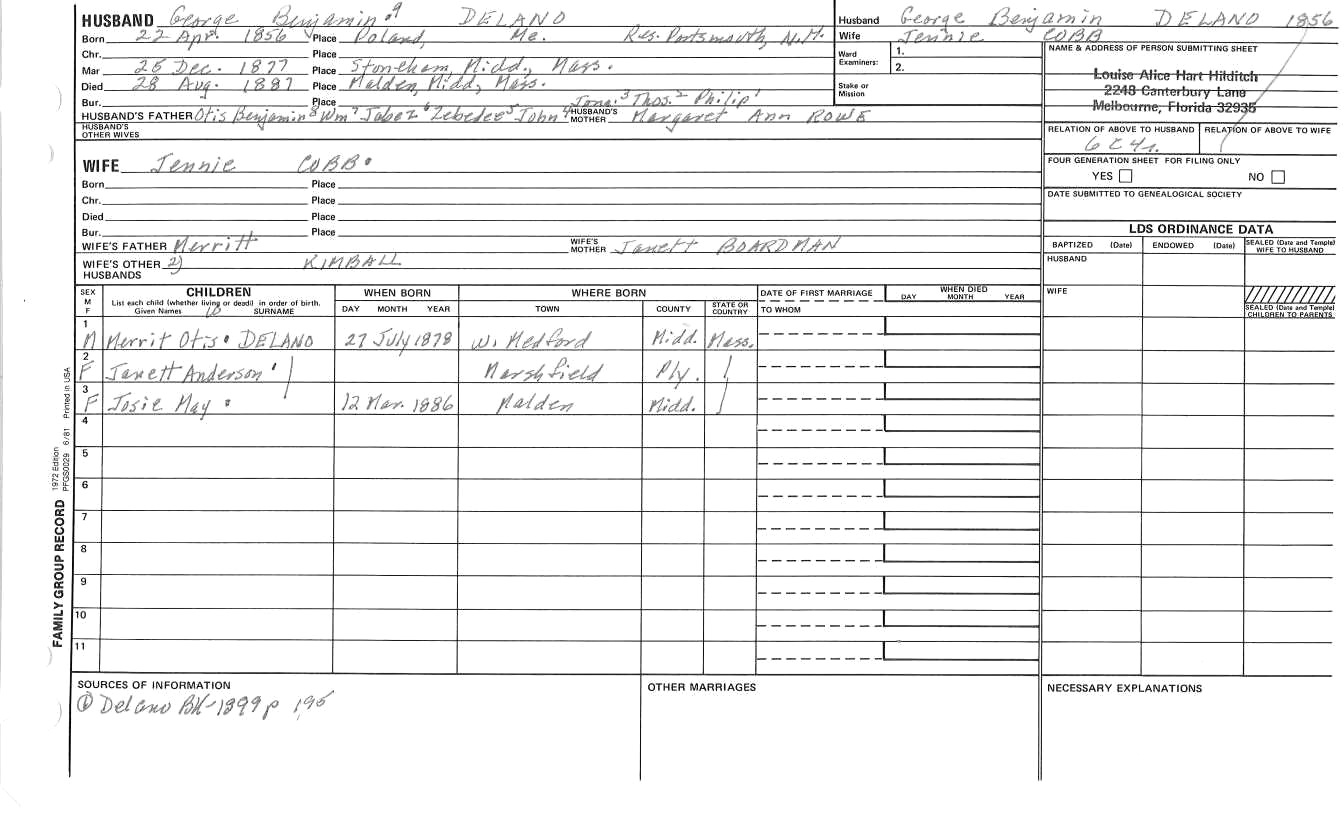 HUSBAND George Benjamin 9 DELANO
Born 22 Apr. 1856 Place Poland, Me. Res. Portsmouth, N.H.
Chr. Place
Mar 25 Dec. 1877 Place Stoneham, Midd., Mass.
Died 28 Aug. 1887 Place Malden, Midd., Mass.
Bur. Place
Jona. 3 Thos. 2 Philip 1
HUSBAND'S FATHER Otis Benjamin 8 Wm 7 Jabez 6 Zebedee 5 John 4 HUSBAND'S MOTHER Margaret Ann ROWE
HUSBAND'S OTHER WIVES
WIFE Jennie COBB
Born Place
Chr. Place
Died Place
Bur. Place
WIFE'S FATHER Merritt WIFE'S MOTHER Janett BOARDMAN
WIFE'S OTHER HUSBANDS 2) KIMBALL
Husband George Benjamin DELANO 1856
Wife Jennie COBB
Ward Examiners: 1.
2.
Stake or Mission
NAME & ADDRESS OF PERSON SUBMITTING SHEET
Louise Alice Hart Hilditch
2248 Canterbury Lane
Melbourne, Florida 32935
RELATION OF ABOVE TO HUSBAND RELATION OF ABOVE TO WIFE
6 C 4r.
FOUR GENERATION SHEET FOR FILING ONLY
YES NO
DATE SUBMITTED TO GENEALOGICAL SOCIETY
LDS ORDINANCE DATA
BAPTIZED (Date) ENDOWED (Date) SEALED (Date and Temple) WIFE TO HUSBAND
HUSBAND
WIFE
SEALED (Date and Temple) CHILDREN TO PARENTS
SEX M F CHILDREN WHEN BORN WHERE BORN DATE OF FIRST MARRIAGE WHEN DIED
List each child (whether living or dead) in order of birth.
Given Names 10 SURNAME DAY MONTH YEAR TOWN COUNTY STATE OR COUNTRY TO WHOM DAY MONTH YEAR
1 M Merrit Otis DELANO 27 July 1878 W. Medford Midd. Mass.
2 F Janett Anderson Marshfield Ply.
3 F Josie May 12 Mar. 1886 Malden Midd.
4
5
6
7
8
9
10
11
SOURCES OF INFORMATION OTHER MARRIAGES NECESSARY EXPLANATIONS
① Delano BK-1899 p 195
FAMILY GROUP RECORD 1972 Edition PFGS0029 6/81 Printed in USA